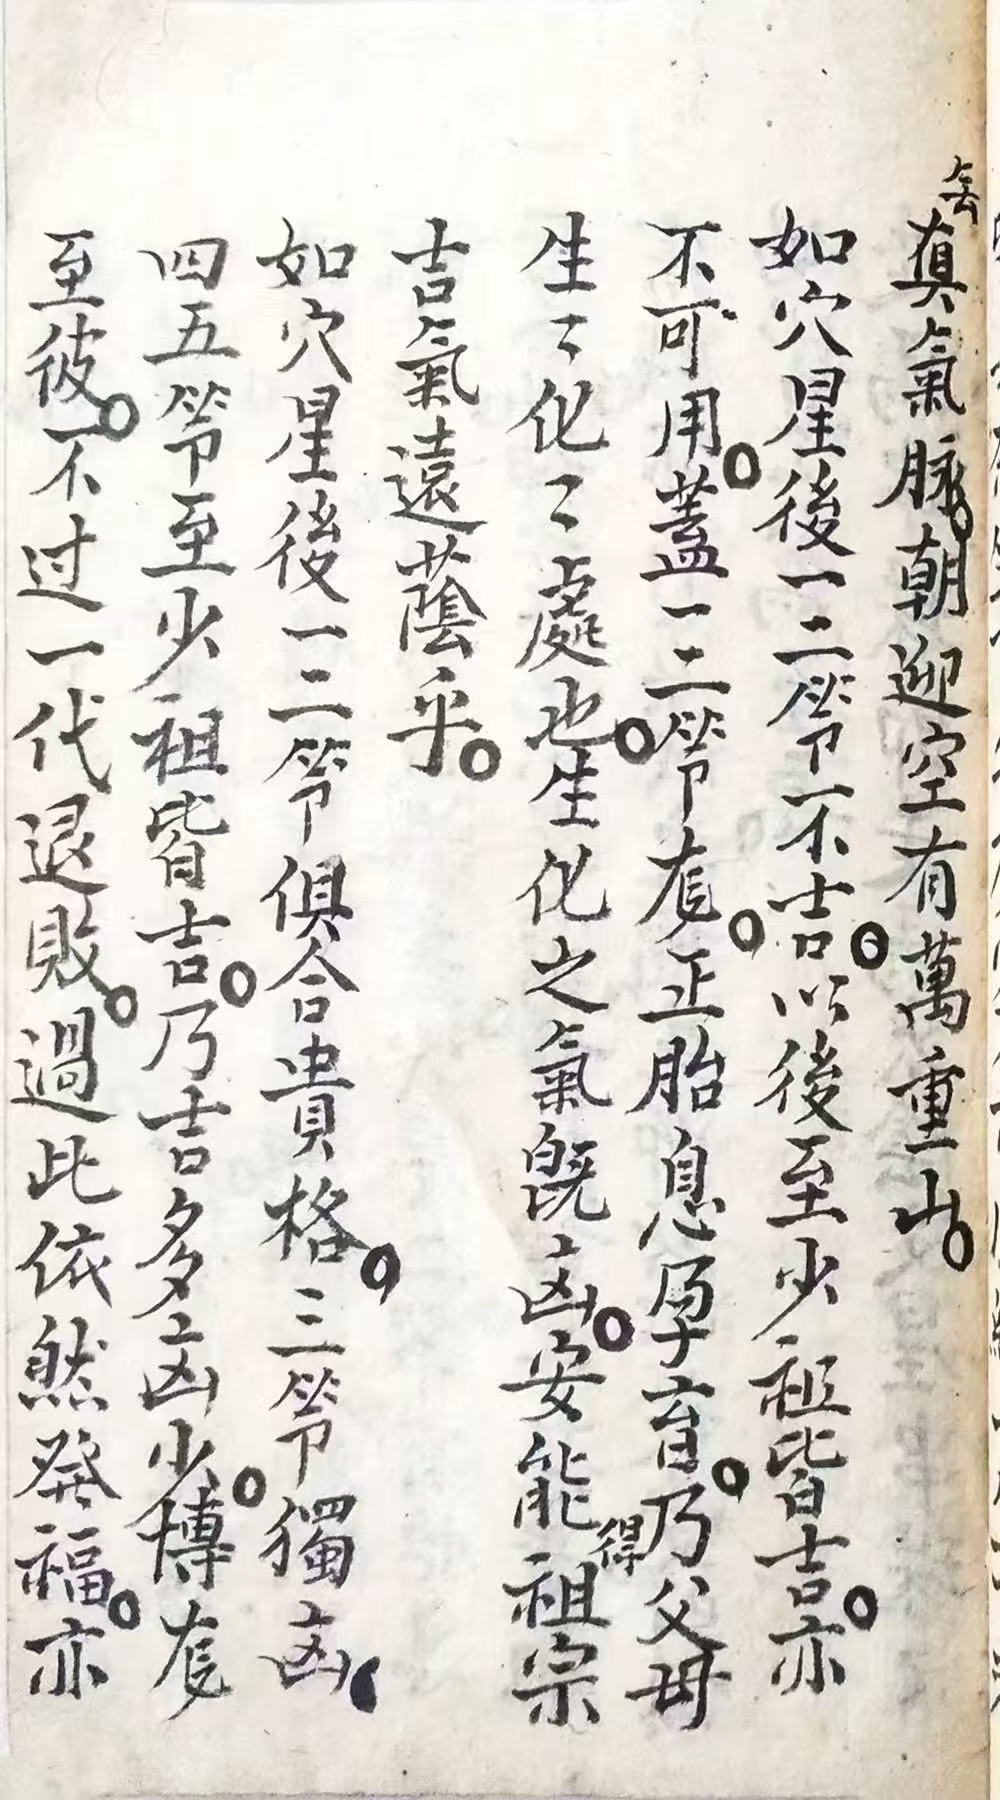 去真氣脉朝迎空有萬重山
如穴星後一二節不吉以後至少祖皆吉亦
不可用蓋一二節處正胎息孕育乃父母
生〻化〻處也生化之氣既凶安能得祖宗
吉氣遠蔭乎
如穴星後一二節俱合貴格三節獨凶
四五節至少祖皆吉乃吉多凶少博處
至彼不过一代退敗過此依然発福亦